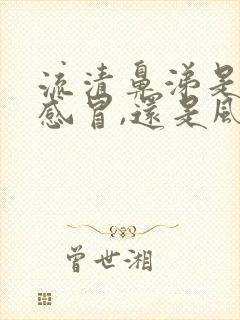 流清鼻涕是
感冒,還是風
曾世湘